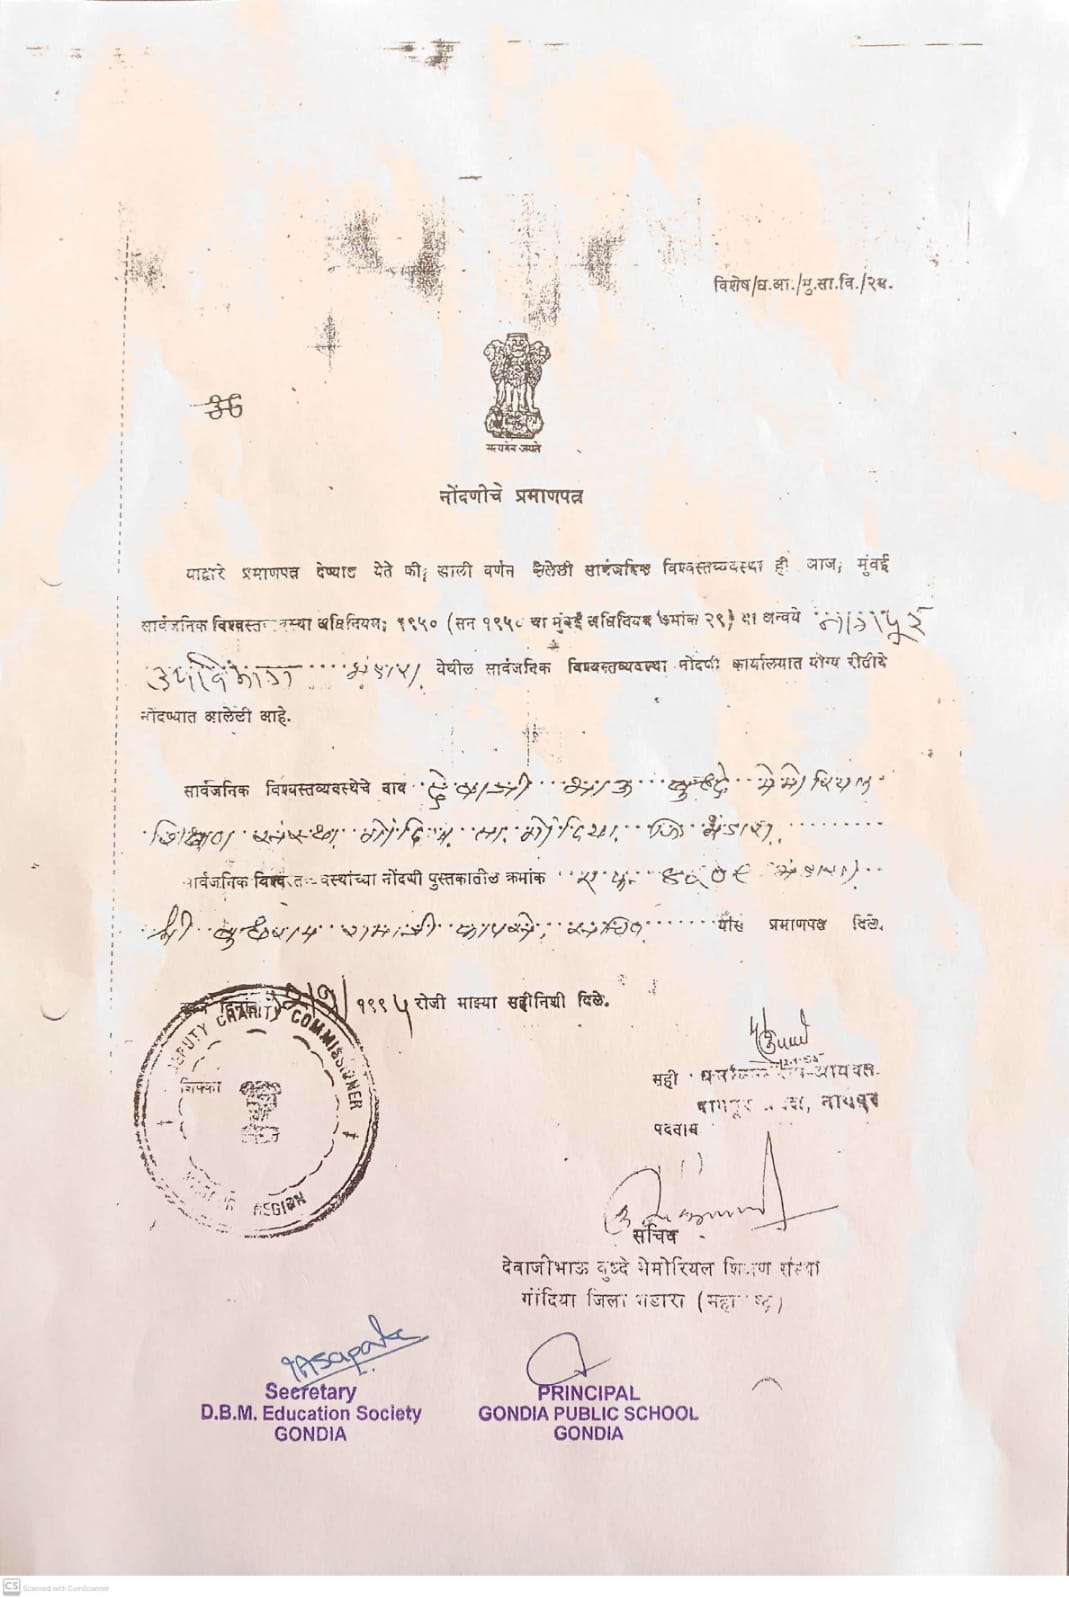 विशेष/घ.आ./मु.सा.वि./२स.
सत्यमेव जयते
नोंदणीचे प्रमाणपत्र
याद्वारे प्रमाणपत्र देण्यात येते की; खाली वर्णन झालेली सार्वजनिक विश्वस्तव्यवस्था ही आज; मुंबई
सार्वजनिक विश्वस्तव्यवस्था अधिनियम; १९५० (सन १९५० चा मुंबई अधिनियम क्रमांक २९) या अन्वये नागपूर
उपविभाग भंडारा येथील सार्वजनिक विश्वस्तव्यवस्था नोंदणी कार्यालयात योग्य रीतीने
नोंदण्यात आलेली आहे.
सार्वजनिक विश्वस्तव्यवस्थेचे नाव देवाजी भाऊ बुध्दे मेमोरियल
शिक्षण संस्था गोंदिया ता. गोंदिया जि. भंडारा.
सार्वजनिक विश्वस्तव्यवस्थांच्या नोंदणी पुस्तकातील क्रमांक
श्री सचिव यांस प्रमाणपत्र दिले.
१९९५ रोजी माझ्या सहीनिशी दिले.
DEPUTY CHARITY COMMISSIONER
शिक्का
REGION
सही
नागपूर नागपूर
पदनाम
सचिव
देवाजीभाऊ बुध्दे मेमोरियल शिक्षण संस्था
गोंदिया जिला भंडारा (महाराष्ट्र)
Secretary
D.B.M. Education Society
GONDIA
PRINCIPAL
GONDIA PUBLIC SCHOOL
GONDIA
CS Scanned with CamScanner